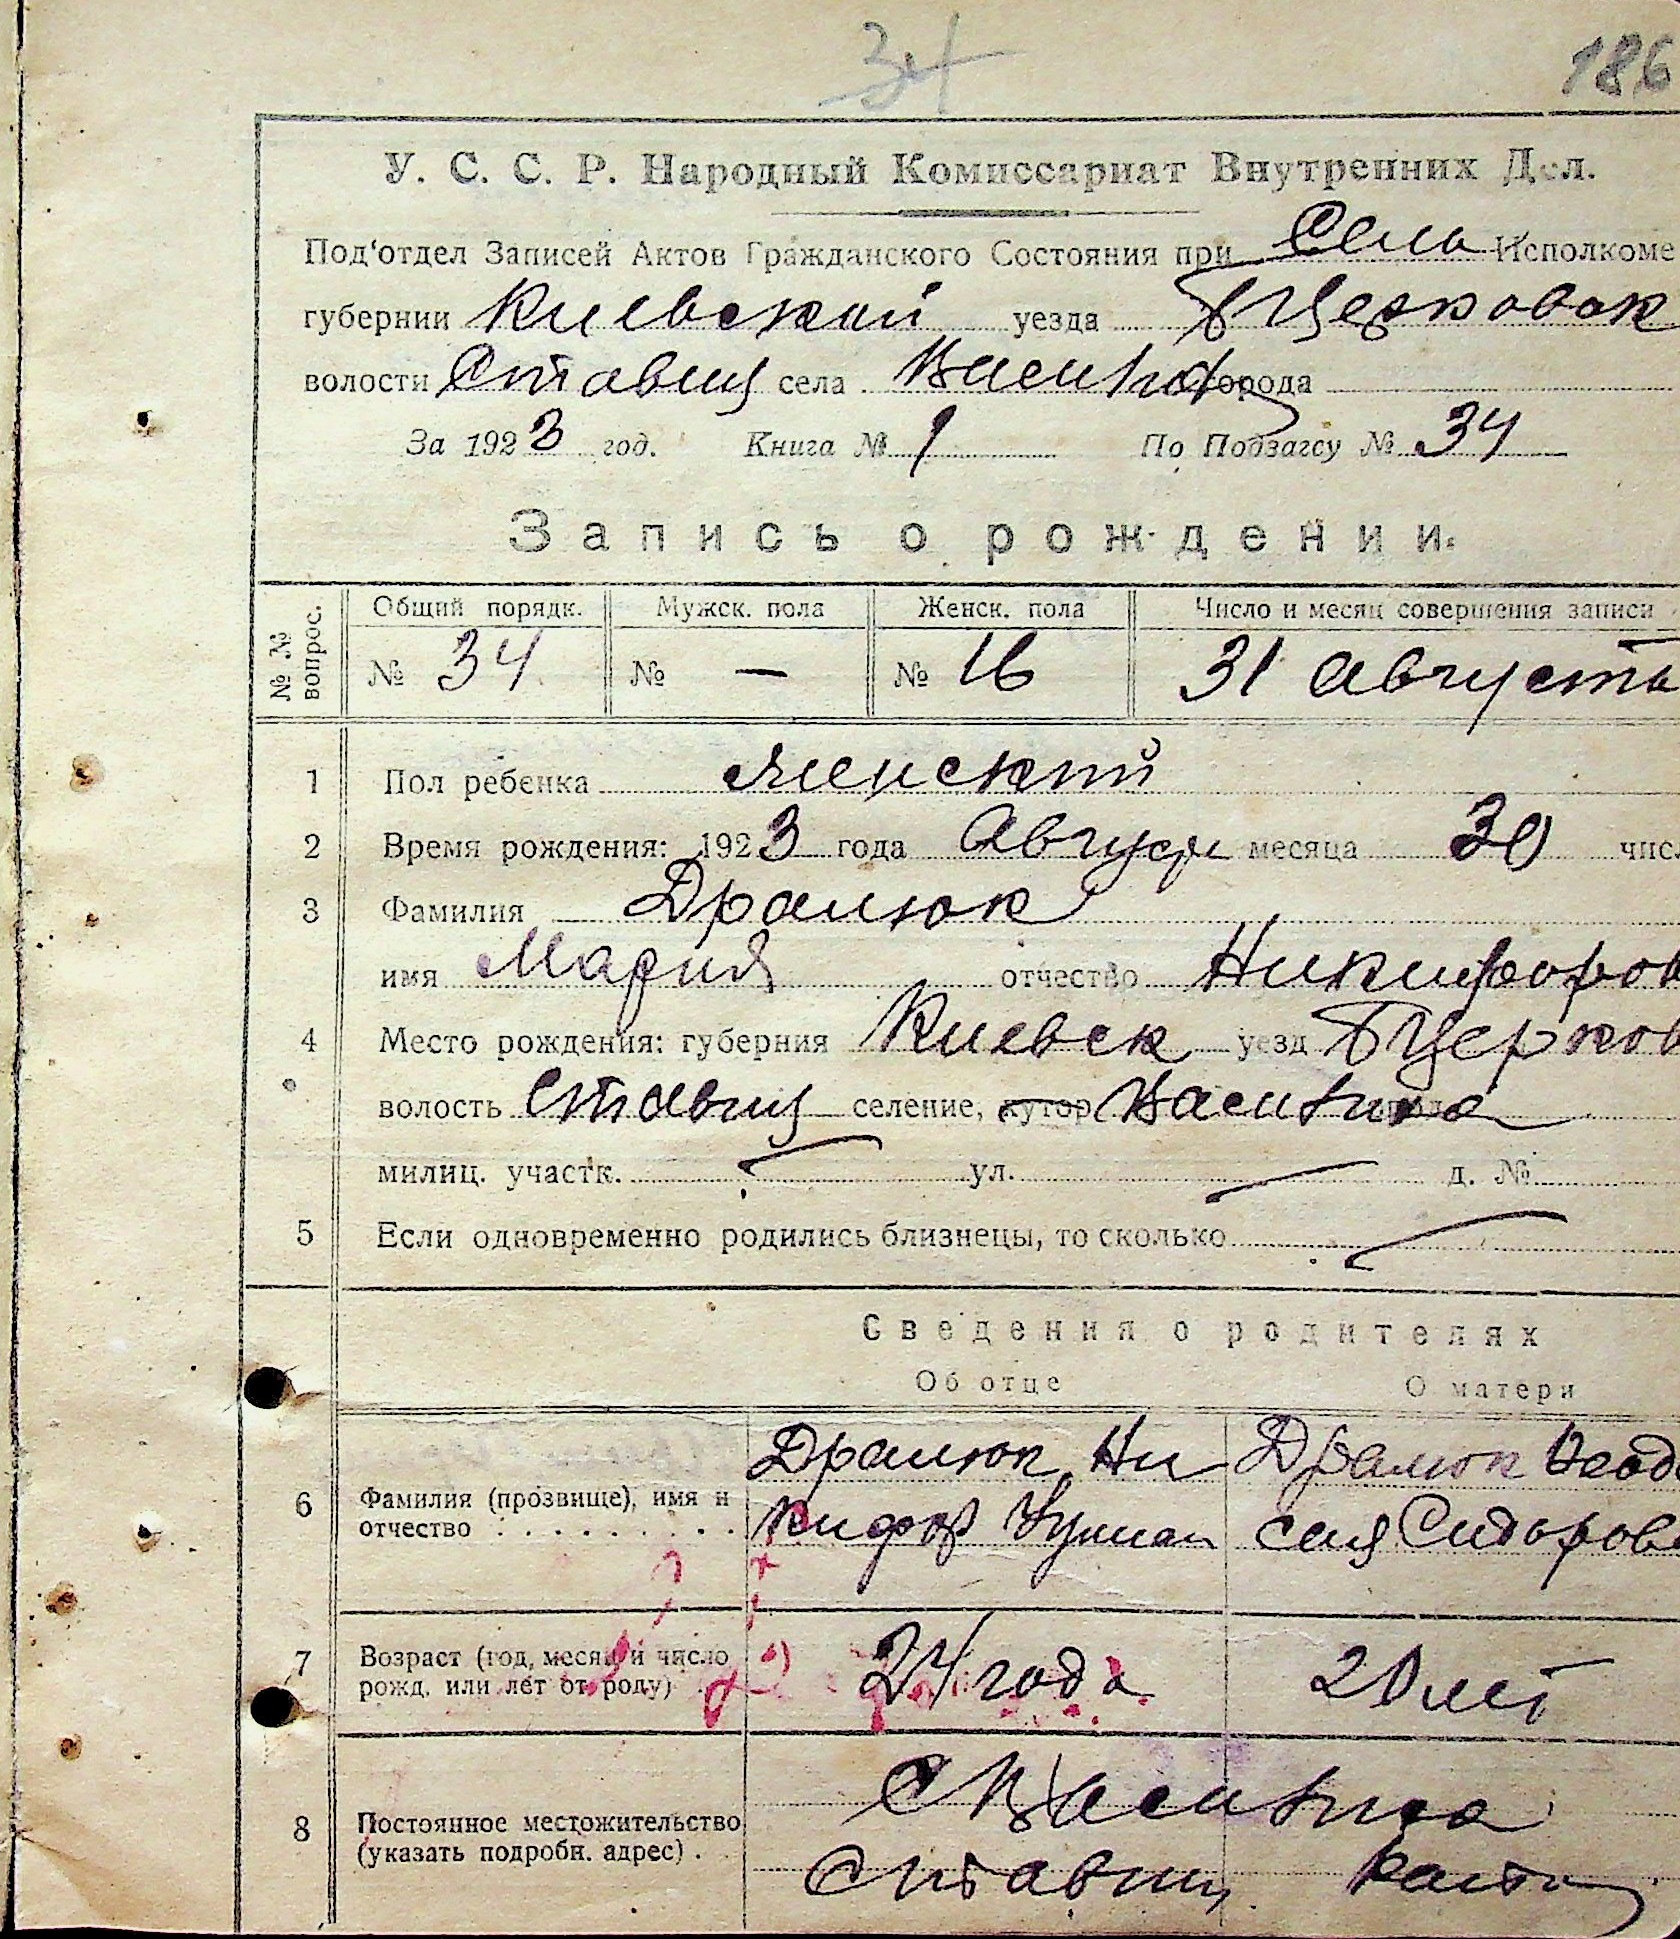 34
186
У. С. С. Р. Народный Комиссариат Внутренних Дел.
Под‘отдел Записей Актов Гражданского Состояния при Сель Исполкоме
губернии Киевской уезда БЦерковск
волости Ставищ села города
За 1923 год. Книга № 1 По Подзагсу № 34
Запись о рождении.
№ № вопрос. Общий порядк. Мужск. пола Женск. пола Число и месяц совершения записи
№ 34 № — № 16 31 Августа
1 Пол ребенка женский
2 Время рождения: 1923 года Август месяца 30 числ
3 Фамилия Дралюк
имя Мария отчество Никифоров
4 Место рождения: губерния Киевск уезд БЦерков
волость Ставищ селение, хутор
милиц. участк. ул. д. №
5 Если одновременно родились близнецы, то сколько
Сведения о родителях
Об отце О матери
6 Фамилия (прозвище), имя и отчество Дралюк Ни Дралюк Феодо
кифор сия Сидоров
7 Возраст (год, месяц и число рожд. или лет от роду) 24 года 20 лет
8 Постоянное местожительство (указать подробн. адрес)
Ставищ